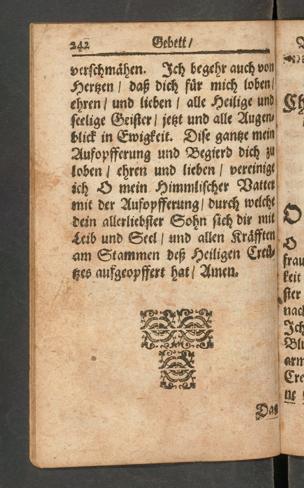 242 Gebett /
verschmähen. Jch begehr auch von
Hertzen / daß dich für mich loben /
ehren / und lieben / alle Heilige und
seelige Geister / jetzt und alle Augen-
blick in Ewigkeit. Dise gantze mein
Aufopfferung und Begierd dich zu
loben / ehren und lieben / vereinige
ich O mein Himmlischer Vatter
mit der Aufopfferung / durch welche
dein allerliebster Sohn sich dir mit
Leib und Seel / und allen Kräfften
am Stammen deß Heiligen Creü-
tzes aufgeopffert hat / Amen.
Das
O
O
frau
keit
ster
nach
Jch
Blu
arm
Cre
ne